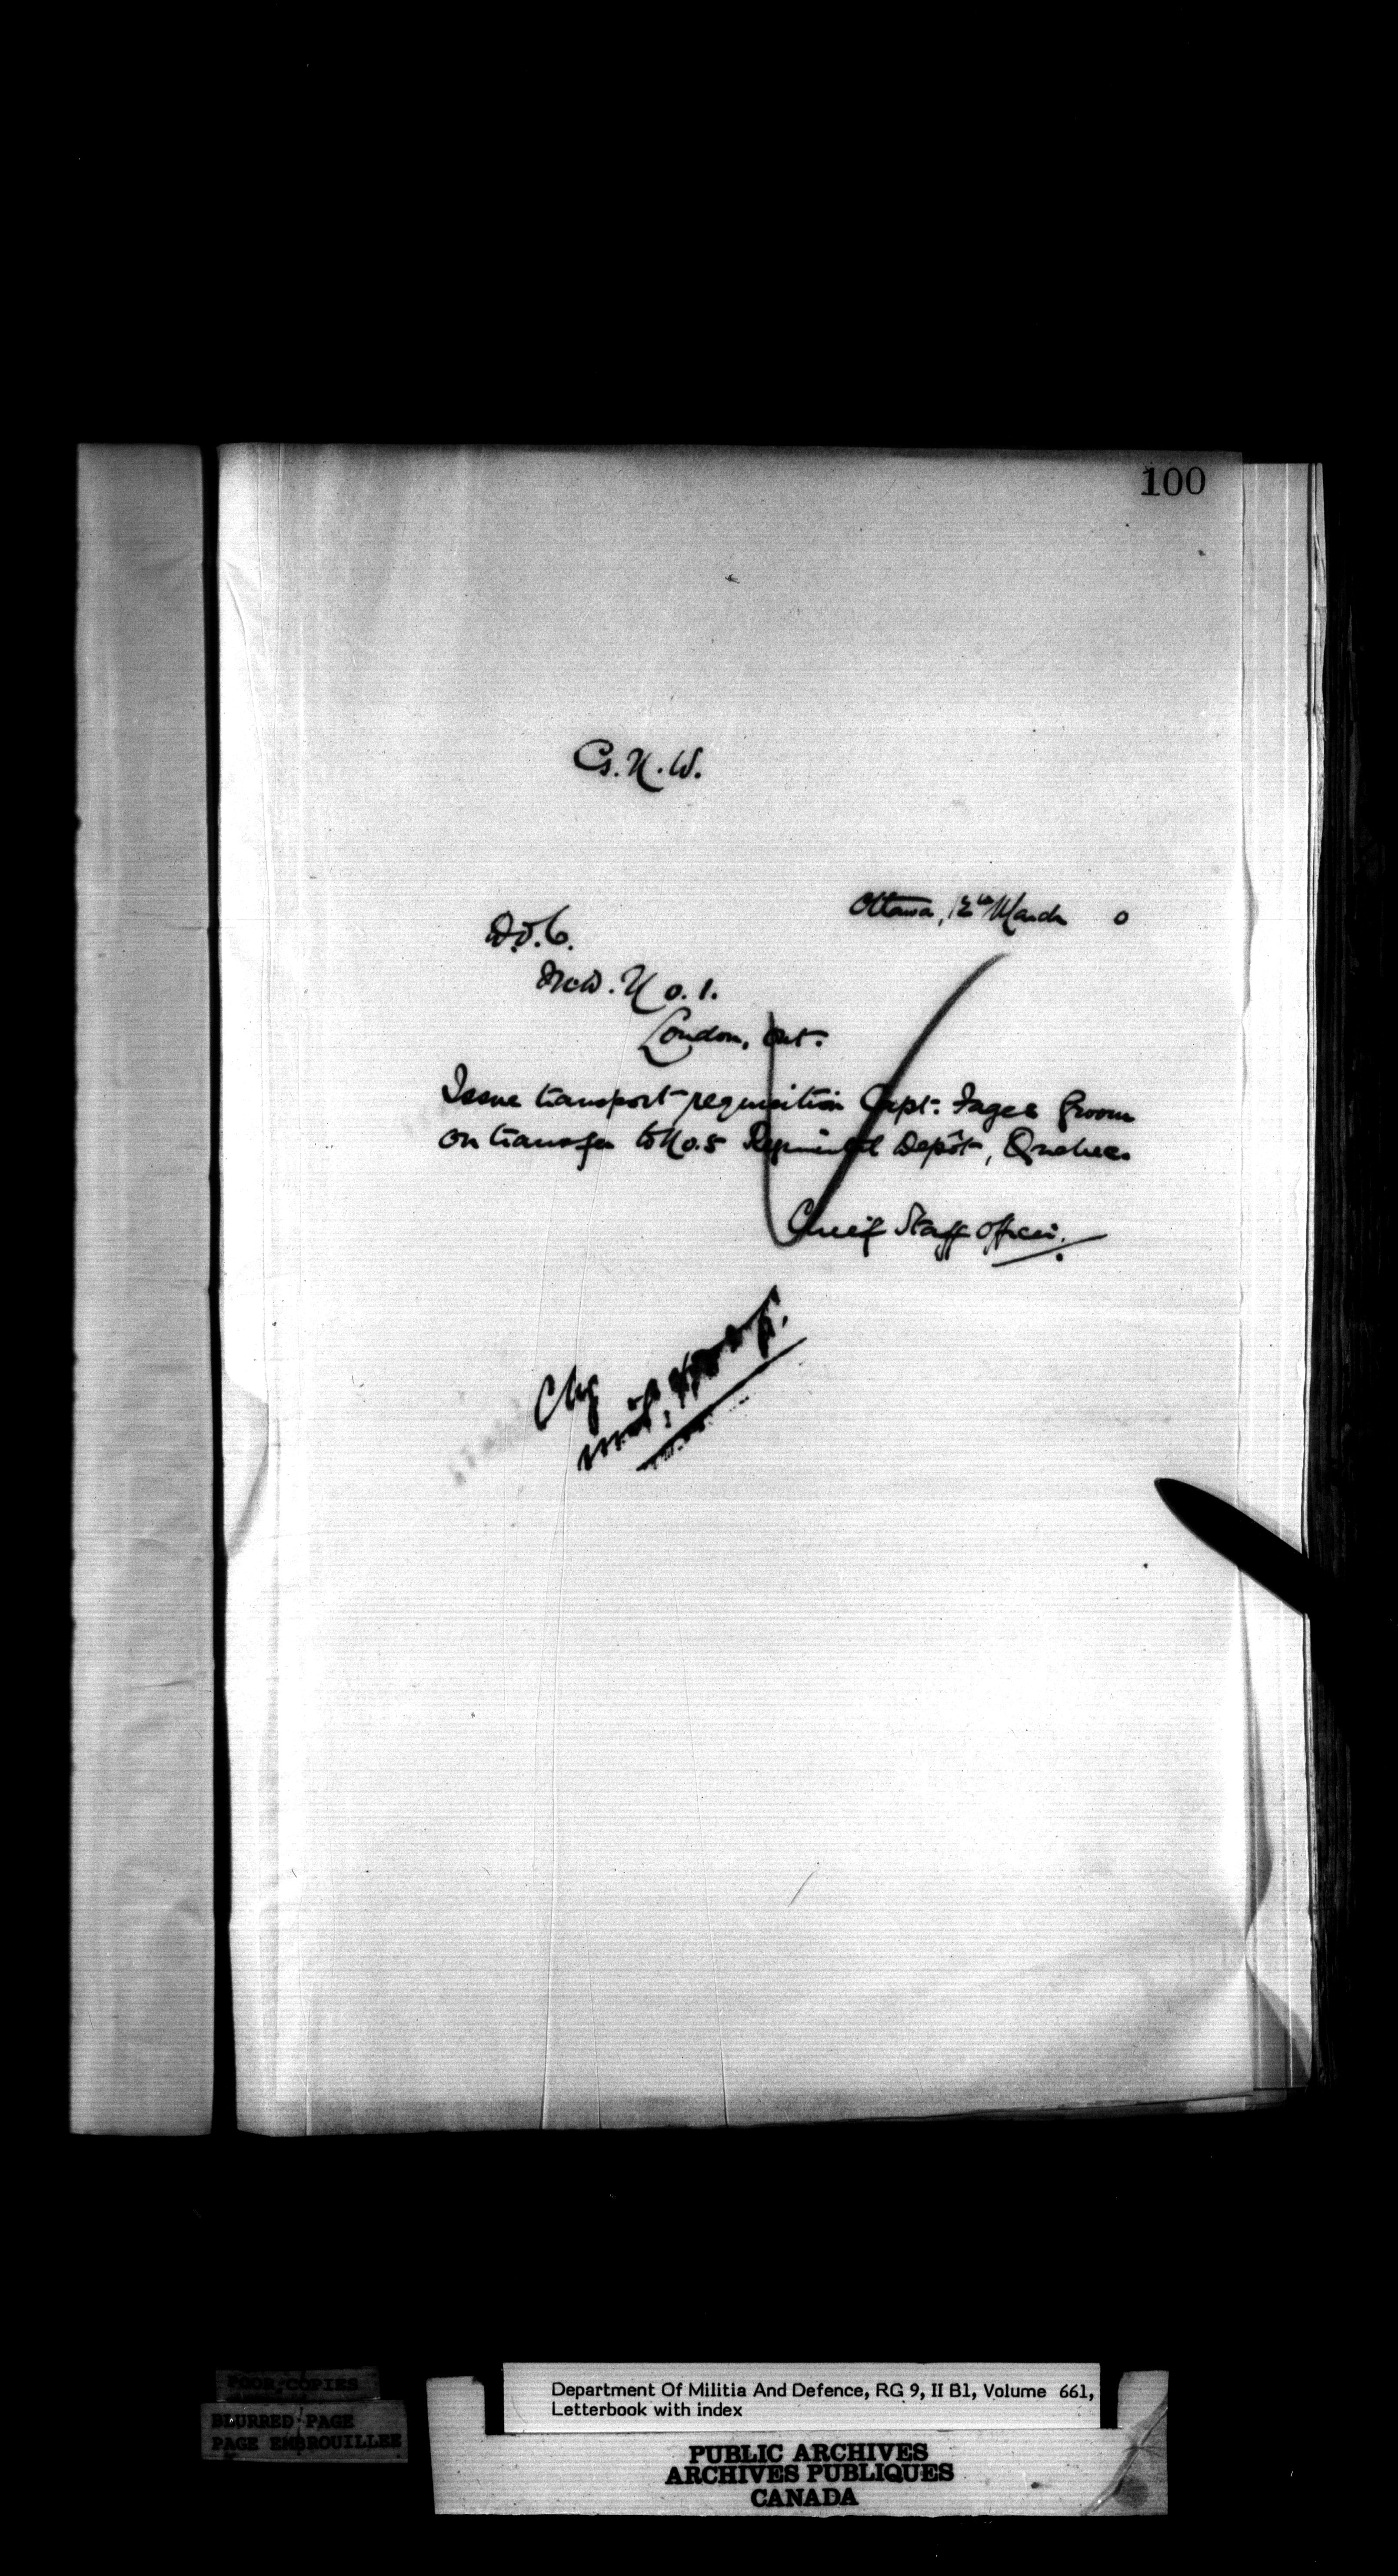 100
G.N.W.
Ottawa, 12th March 0
D.O.C.
M.D. No. 1.
London, Ont.
Issue transport requisition Capt. Fages Groom
on transfer to No. 5 Regimental Depôt, Quebec.
Chief Staff Officer.
Chg
POOR COPIES
BLURRED PAGE
PAGE EMBROUILLEE
Department Of Militia And Defence, RG 9, II B1, Volume 661,
Letterbook with index
PUBLIC ARCHIVES
ARCHIVES PUBLIQUES
CANADA